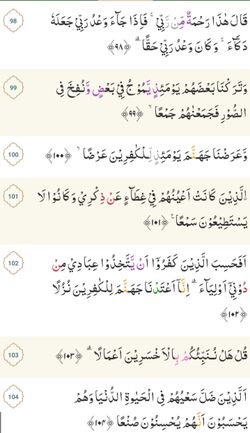 98
قَالَ هٰذَا رَحْمَةٌ مِّنْ رَّبِّيْ ۚ فَاِذَا جَآءَ وَعْدُ رَبِّيْ جَعَلَهٗ
دَكَّآءَ ۚ وَكَانَ وَعْدُ رَبِّيْ حَقًّا ۗ ﴿٩٨﴾
99
وَتَرَكْنَا بَعْضَهُمْ يَوْمَىِٕذٍ يَّمُوْجُ فِيْ بَعْضٍ وَّنُفِخَ فِى
الصُّوْرِ فَجَمَعْنٰهُمْ جَمْعًا ۙ ﴿٩٩﴾
100
وَّعَرَضْنَا جَهَنَّمَ يَوْمَىِٕذٍ لِّلْكٰفِرِيْنَ عَرْضًا ۙ ﴿١٠٠﴾
101
الَّذِيْنَ كَانَتْ اَعْيُنُهُمْ فِيْ غِطَآءٍ عَنْ ذِكْرِيْ وَكَانُوْا لَا
يَسْتَطِيْعُوْنَ سَمْعًا ۚ ﴿١٠١﴾
102
اَفَحَسِبَ الَّذِيْنَ كَفَرُوْٓا اَنْ يَّتَّخِذُوْا عِبَادِيْ مِنْ
دُوْنِيْٓ اَوْلِيَآءَ ۗ اِنَّآ اَعْتَدْنَا جَهَنَّمَ لِلْكٰفِرِيْنَ نُزُلًا
﴿١٠٢﴾
103
قُلْ هَلْ نُنَبِّئُكُمْ بِالْاَخْسَرِيْنَ اَعْمَالًا ۗ ﴿١٠٣﴾
104
اَلَّذِيْنَ ضَلَّ سَعْيُهُمْ فِى الْحَيٰوةِ الدُّنْيَا وَهُمْ
يَحْسَبُوْنَ اَنَّهُمْ يُحْسِنُوْنَ صُنْعًا ﴿١٠٤﴾